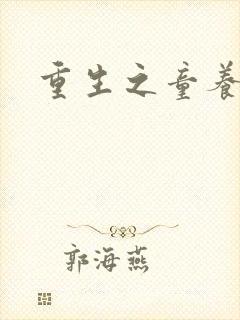 重生之童养
郭海燕